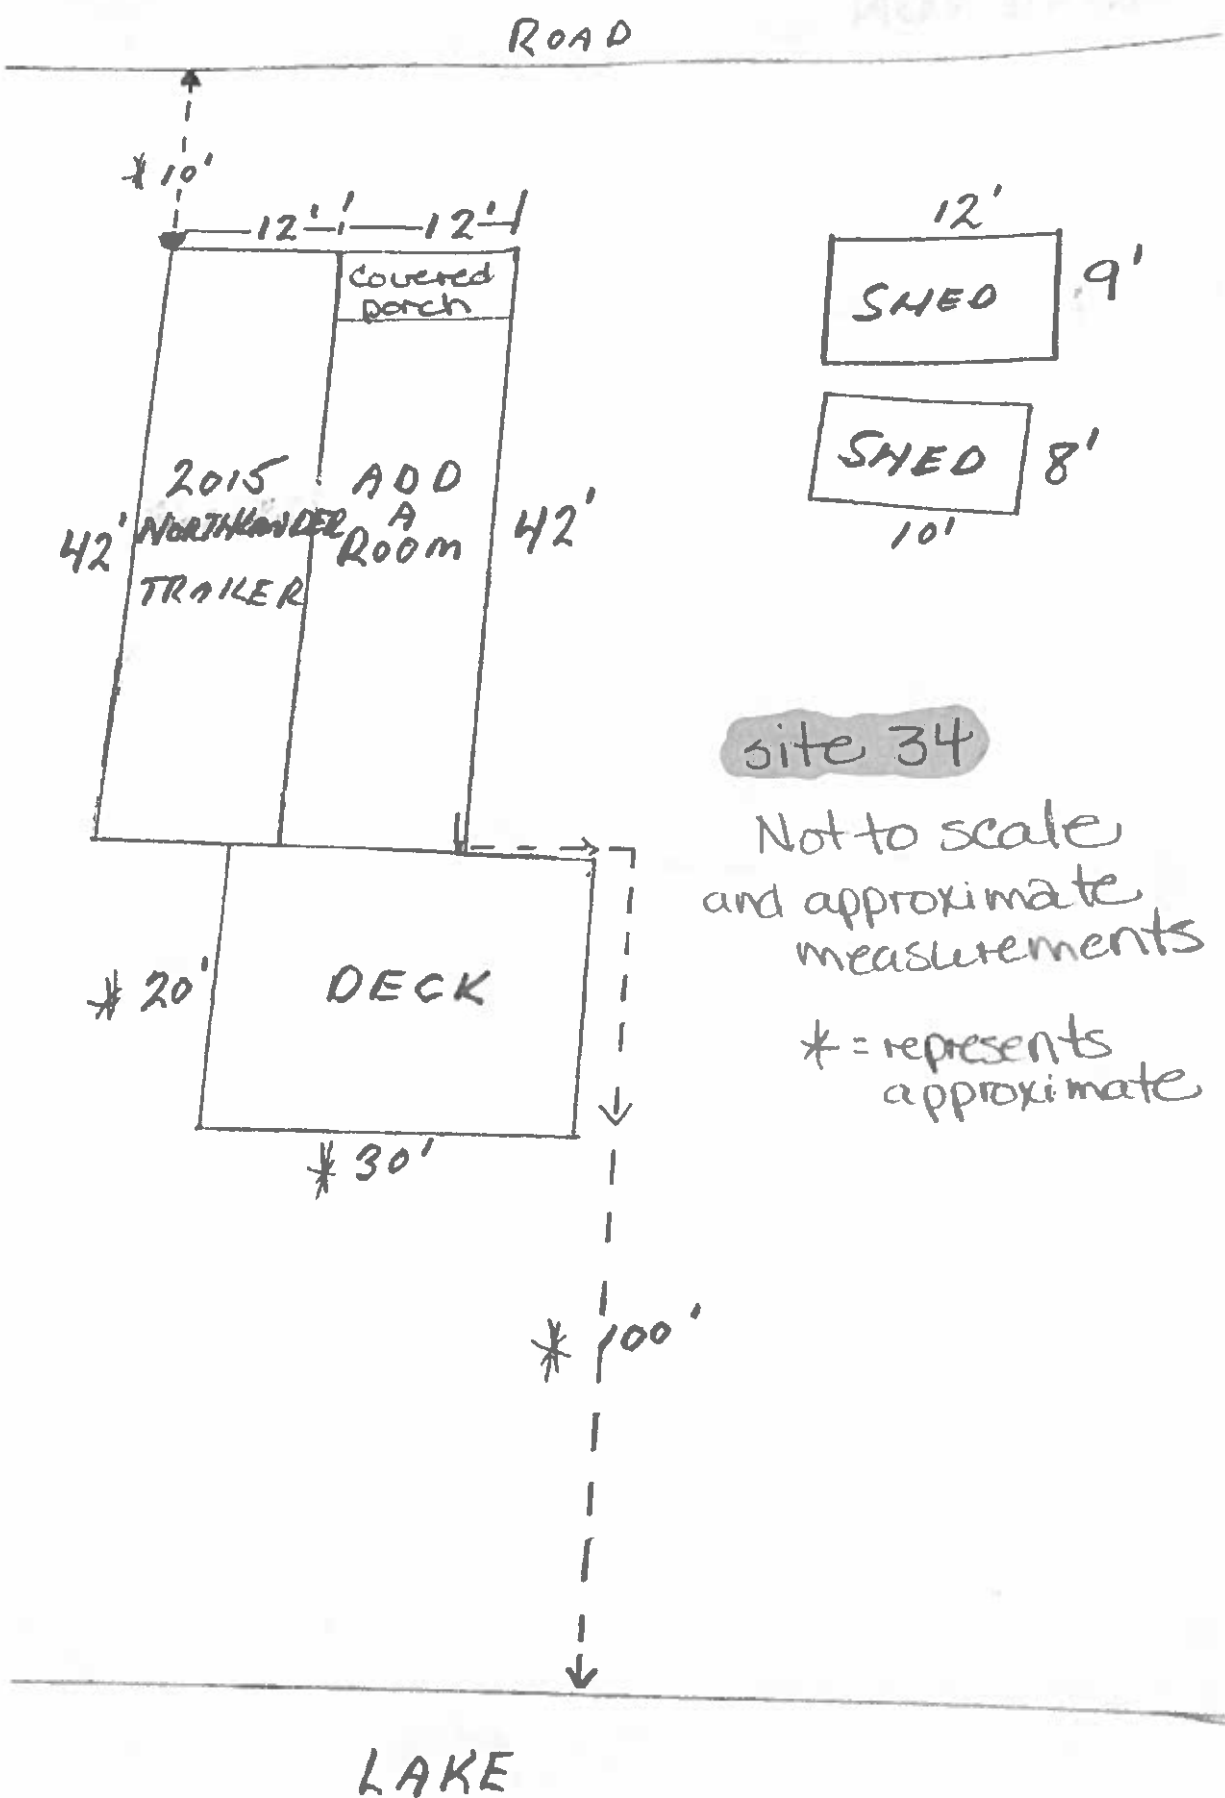 ROAD
* 10'
12' 12'
covered
porch
12'
SHED 9'
SHED 8'
10'
2015
NORTHLANDER
TRAILER
42'
ADD
A
ROOM
42'
site 34
Not to scale
and approximate
measurements
* = represents
approximate
* 20'
DECK
* 30'
* 100'
LAKE